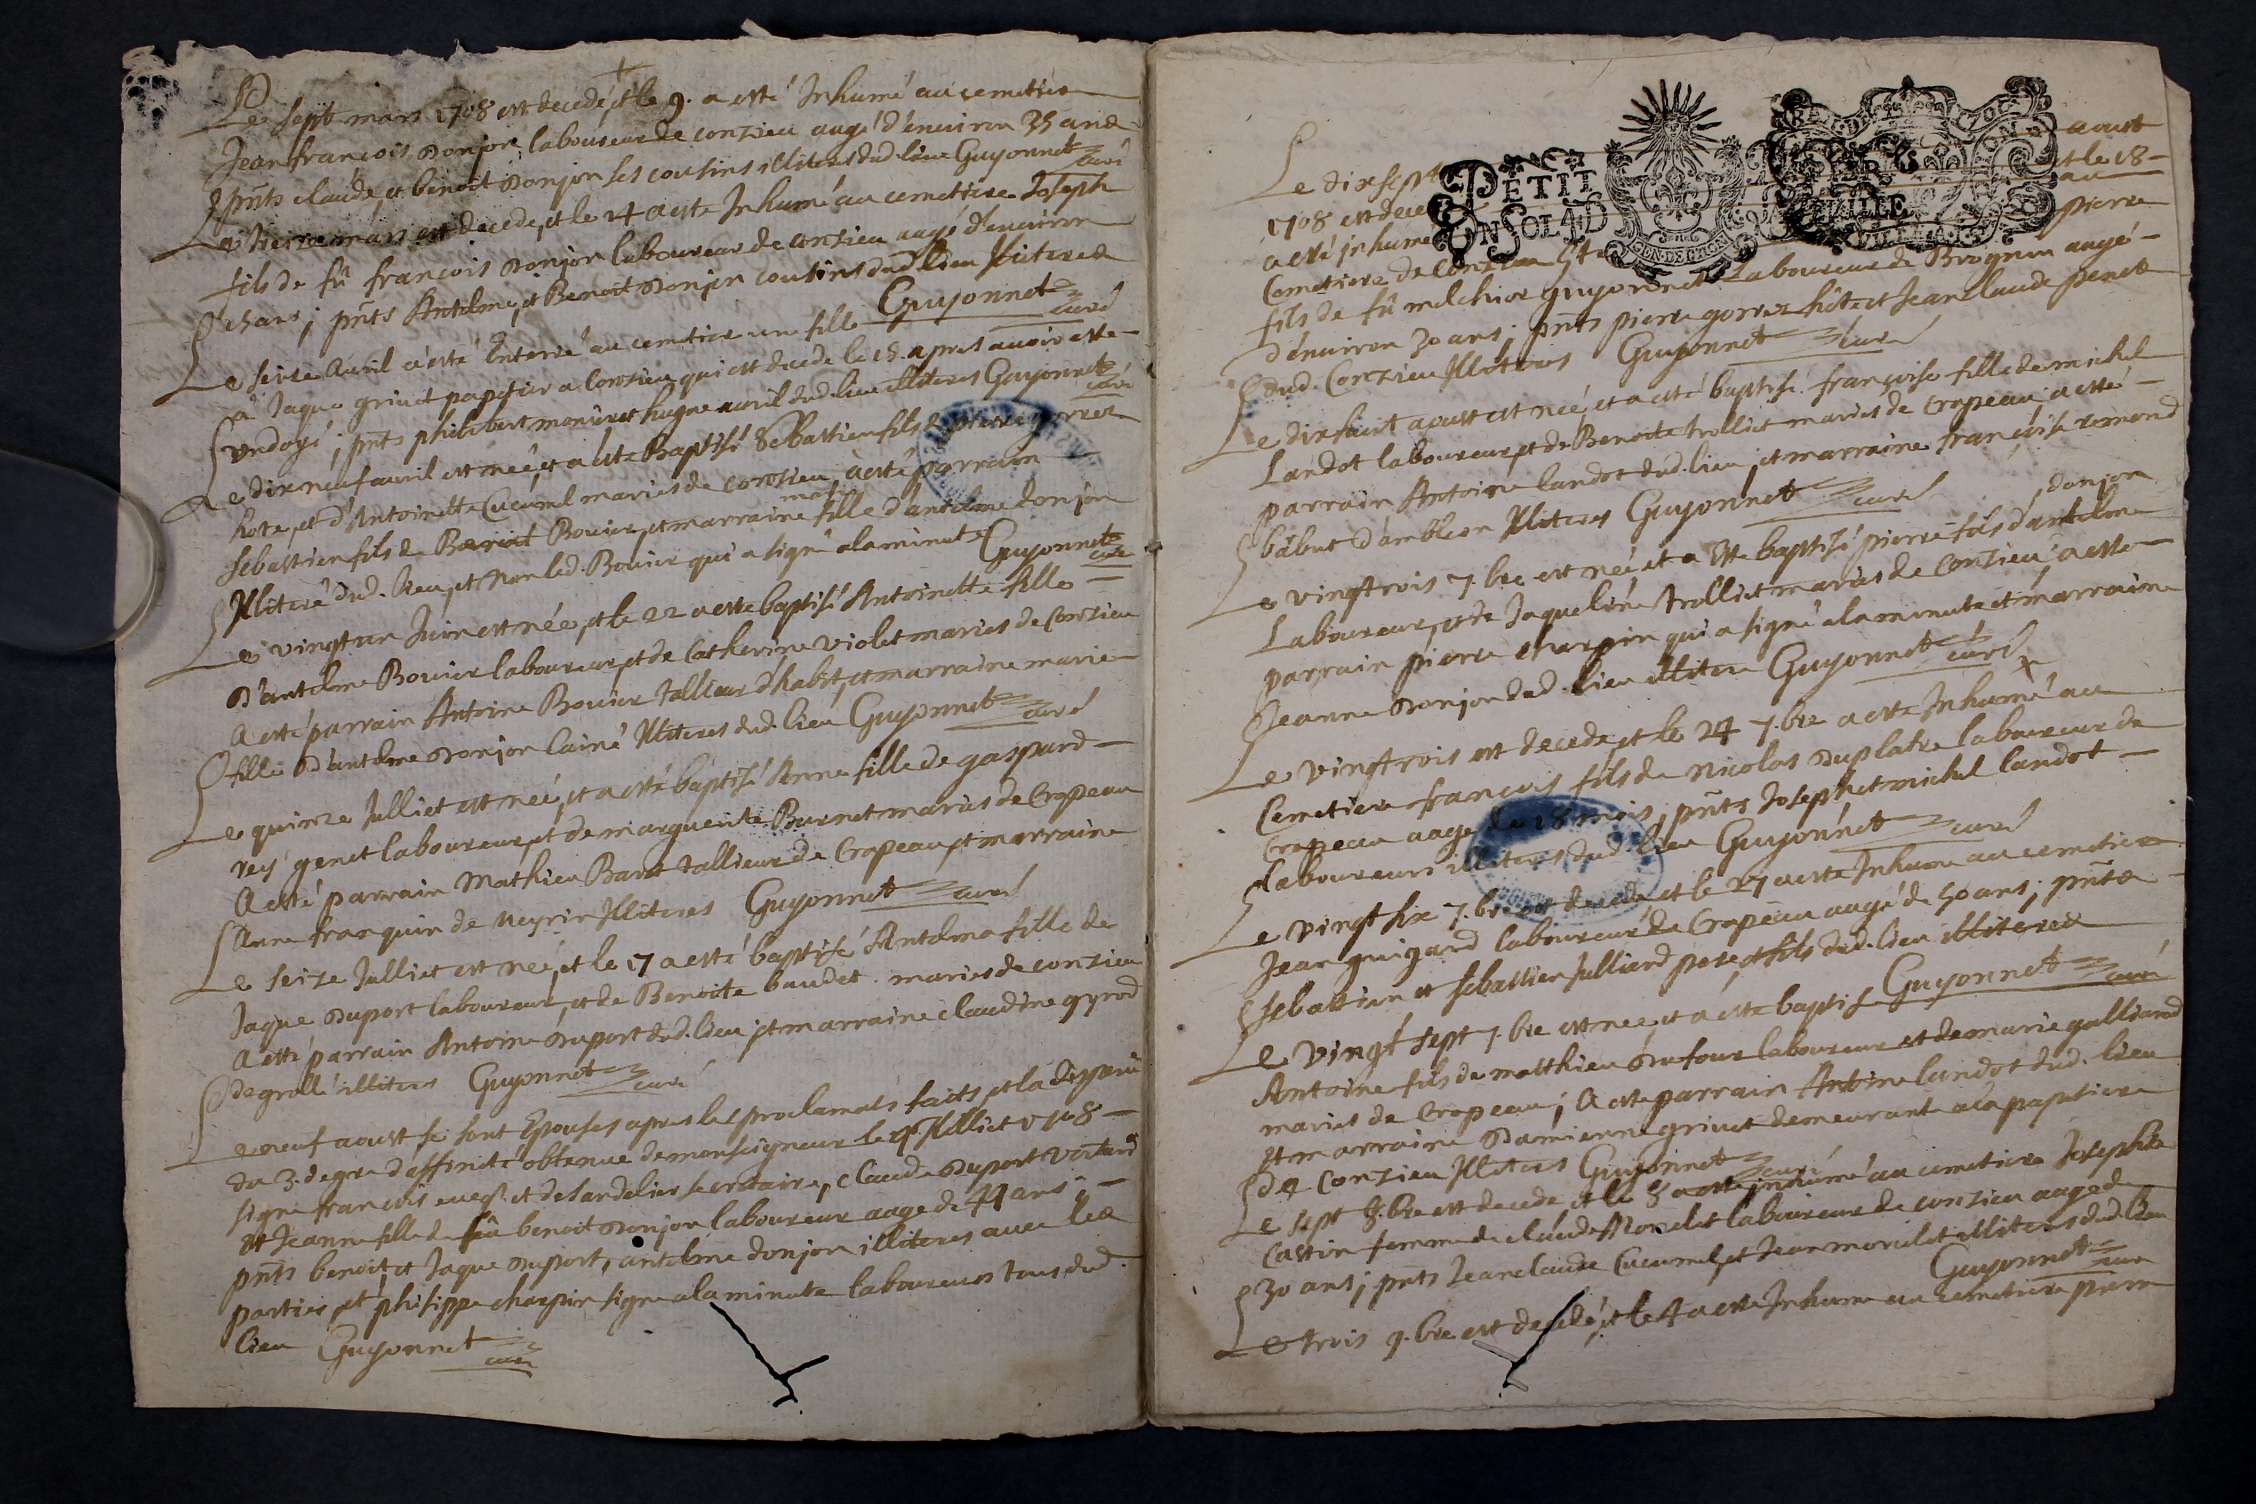 Le sept mars 1708 est decedé et le 9. a esté Inhumé au cemetiere
Jean françois Donjon laboureur de conzieu aagé d'enuiron 35 ans
pnts claude, et benoit Donjon ses cousins illiteres dud. lieu Guyonnet curé
Le treize mars est decede, et le 14 a este Inhumé au cemetiere Joseph
fils de fû francois Donjon laboureur de conzieu aagé d'enuiron
ans ; pnts Antelme, et Benoit Donjon cousins dud. lieu Illiteres
Guyonnet curé
Le seize Auril a esté Enterré au cemetiere une fille
a Jaque grinet papetier a Conzieu qui est decede le 15. apres auoir esté
undoyé ; pnts philibert et hugue auril dud. lieu illiteres Guyonnet curé
Le dix neuf auril est neê, et a esté Baptisé Sebastien fils de pierre gorrez
hote, et d'Antoinette Cucumel mariés de conzieu, a esté parrain
sebastien fils de Benoit Bouier, et marraine fille d'antelme donjon
Illiteré dud. lieu, et non led. Bouier qui a signé a la minute Guyonnet curé
Le vingt un Juin est née, et le 22 a esté baptisé Antoinette fille
d'antelme Bouier laboureur, et de Catherine Violet mariés de Conzieu
a esté parrain Antoine Bouier tallieur d'habit, et marraine marie
fille d'antelme Donjon lainé Illiteres dud. lieu Guyonnet curé
Le quinze Julliet est neé, et a esté baptisé Anne fille de gaspard
rey genet laboureur, et de marguerite Burnet mariés de Cropeau
a esté parrain Mathieu Baret tallieur de Cropeau, et marraine
Anne franquin de neyrin Illiteres Guyonnet curé
Le seize Julliet est neé, et le 17 a esté baptisé Antelma fille de
Jaque Duport laboureur, et de Benoite baudet mariés de conzieu
a esté parrain Antoine Duport dud. lieu, et marraine claudine gyrod
de grolle illiteres Guyonnet curé
Le neuf aoust se sont Epousés apres les proclamats faits, et la dispense
du 3. degre d'affinité obtenue de monseigneur le 9 Julliet 1708
signé françois eueq. et de Sandelier secretaire, Claude Duport
et Jeanne fille de fû benoit Donjon laboureur aagé de 44 ans ;
pnts benoit et Jaque Duport, antelme donjon illiteres auec les
parties, et philippe charpin signé a la minute laboureurs tous dud.
lieu Guyonnet curé
PETIT
EN SOL 4 D
Le dixsept aoust
1708 est dece et le 18
a esté Inhumé au
Cemetiere de Conzieu pierre
fils de fû melchior guyonnet Laboureur de Brognin aagé
d'enuiron 30 ans ; pnts pierre gorrez hôte et Jean claude penet
dud. Conzieu Illiteres Guyonnet curé
Le dixhuit aoust est neé, et a esté baptisé françoise fille de michel
Landot laboureur, et de Benoite trolliet mariés de Cropeau a esté
parrain Antoine landot dud. lieu, et marraine françoise remond
d'ambleon Illiteres Guyonnet curé
Le vingtrois 7.bre est neé et a esté baptisé pierre fils d'antelme donjon
Laboureur, et de Jaqueline trolliet mariés de Conzieu, a esté
parrain pierre charpin qui a signé a la minute et marraine
Jeanne Donjon dud. lieu illitere Guyonnet curé
Le vingtrois est decede, et le 24 7.bre a esté Inhumé au
Cemetiere françois fils de Nicolas Duplatre laboureur de
Cropeau aagé de 18 mois, pnts Joseph et michel landot
laboureurs illiteres dud. lieu Guyonnet curé
Le vingt six 7.bre est decede et le 27 a esté Inhumé au cemetiere
Jean guigard laboureur de Cropeau aagé de 50 ans ; pnts
sebastien et sebastien Julliard pere, et fils dud. lieu illiteres
Guyonnet curé
Le vingt sept 7.bre est neé, et a esté baptisé
Antoine fils de matthieu Dufour laboureur et de marie galliard
mariés de Cropeau ; a esté parrain Antoine landot dud. lieu
et marraine Damienne grinet demeurante a la papetiere
de Conzieu Illiteres Guyonnet curé
Le sept 8.bre est decede et le 8 a esté inhumé au cemetiere Josephte
Castin femme de claude Morelet laboureur de conzieu aagé de
30 ans ; pnts Jean claude Cucumel, et Jean morelet illiteres dud. lieu
Guyonnet curé
Le trois 9.bre est decede, et le 4 a esté Inhumé au cemetiere pierre